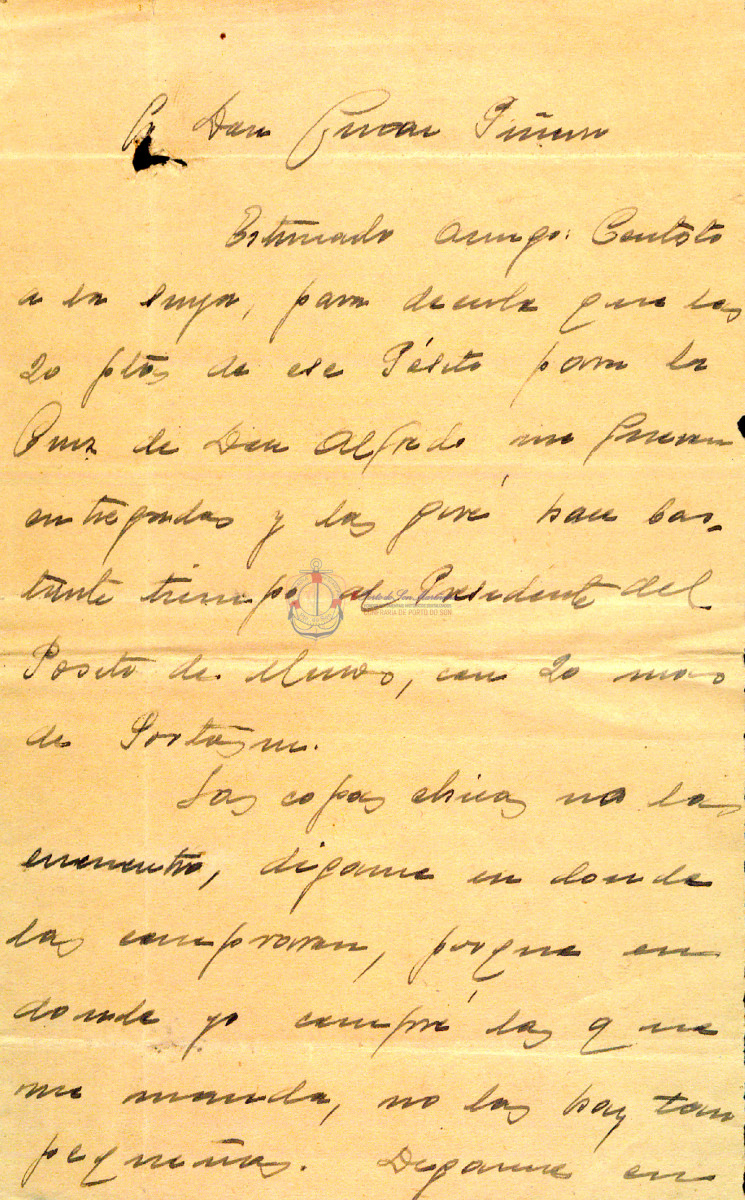 A Don Piñeiro
Estimado amigo: Contesto
a la suya, para decirle que las
20 ptas de ese Pósito para la
Cruz de Don Alfredo me fueron
entregadas y las giré hace bas-
tante tiempo al Presidente del
Posito de Muros, con 20 mas
de Portosin.
Las copas chicas no las
encuentro, digame en donde
las compraron, porque en
donde yo compré las que
me manda, no las hay tan
pequeñas. Digame en
CONFRARÍA DE PORTO DO SON